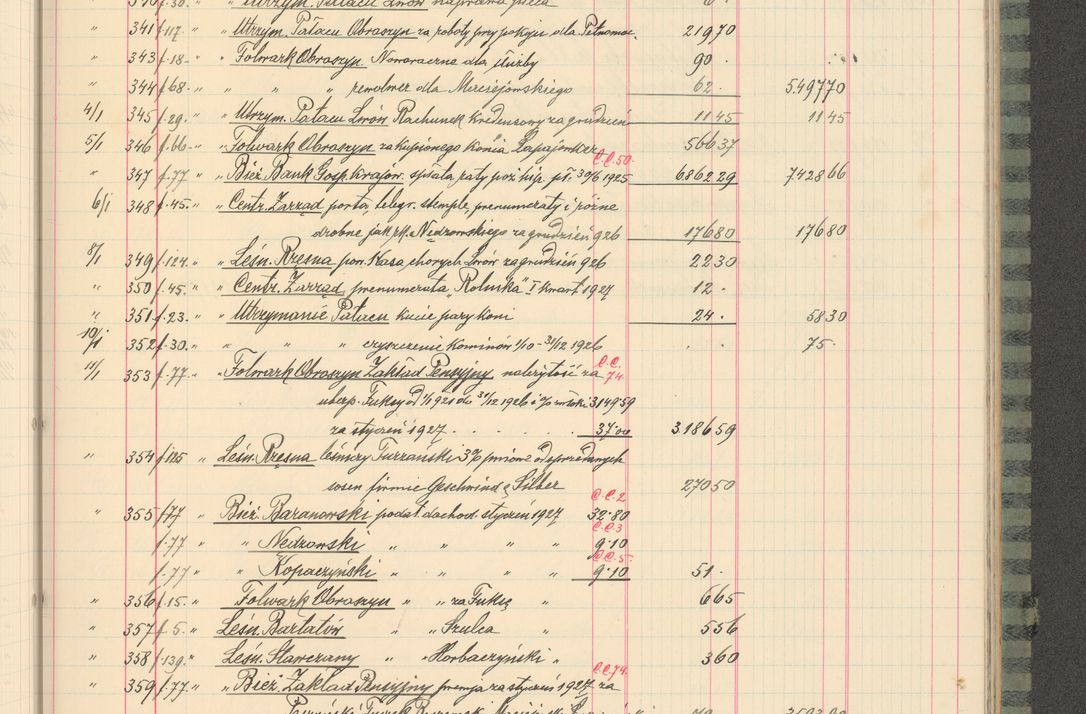 " 341 f.117. " " Utrzym. Pałacu Obroszyn za roboty przy pokoju dla Pełnomoc. 219 70
" 343 f.18. " " Folwark Obroszyn Noworoczne dla służby 90 .
" 344 f.68. " " " " rewolwer dla Maciejowskiego 62 . 5497 70
4/1 345 f.29. " " Utrzym. Pałacu Lwów Rachunek kredensowy za grudzień 11 45 11 45
5/1 346 f.66. " " Folwark Obroszyn zakupionego konia 566 37
C.C.50.
" 347 f.77 " " Bież. Bank Gosp. Krajow. spłata raty poż. hip. pł. 30/6 1925 6862 29 7428 66
6/1 348 f.45. " " Centr. Zarząd porta, telegr. stemple, prenumeraty i różne
drobne jak rk. Nedzowskiego za grudzień 926 176 80 176 80
8/1 349 f.124. " " Leśn. Rzesna pow. Kasa chorych Lwów za grudzień 926 22 30
" 350 f.45. " " Centr. Zarząd prenumerata "Rolnika" I kwart. 1927 12 .
" 351 f.23. " " Utrzymanie Pałacu kucie pary koni 24 . 58 30
10/1 352 f.30. " " " " czyszczenie kominów 1/10 - 31/12 1926 . . 75 .
C.C. 74.
11/1 353 f.77. " " Folwark Obroszyn Zakład Pensyjny należytość za
ubezp. Fuksy od 1/1 1921 do 31/12 1926 i % zwłoki 3149.59
za styczeń 1927 . . . . . 37.00 3186 59
" 354 f.125 " Leśn. Rzęsna leśniczy Turzański 3% od sprzedanych
sosen firmie Geschwind & Silber 270 50
C.C.2
" 355 f.77 " Bież. Baranowski podat. dochod. styczeń 1927 32.80
C.C.3
f.77 " " Nedzowski " " " " 9.10
C.C.5.
f.77 " " Kopaczyński " " " " 9.10 51 .
" 356 f.15. " Folwark Obroszyn " " za Fuksę " 6 65
" 357 f.5. " Leśn. Bartatów " " Szulca " 5 56
" 358 f.139. " Leśn. Stawczany " " Horbaczyński " 3 60
C.C.74.
" 359 f.77. " " Bież. Zakład Pensyjny premja za styczeń 1927 za